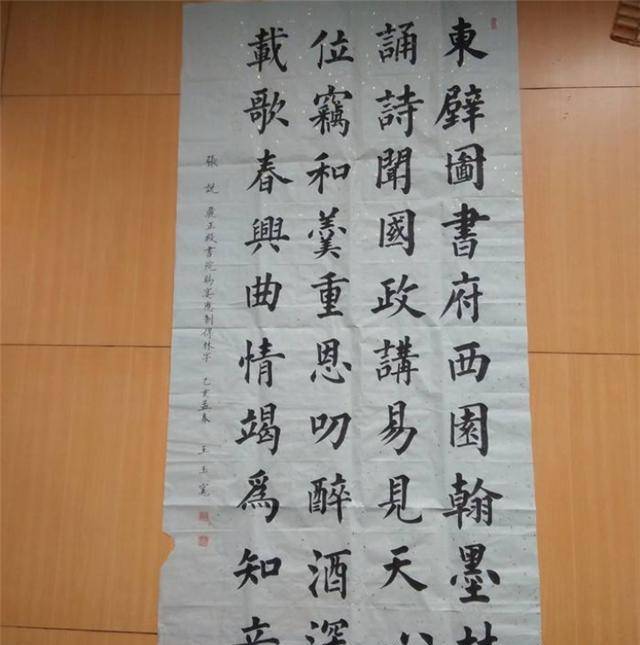 東壁圖書府西園翰墨林
誦詩聞國政講易見天心
位竊和羹重恩叨醉酒深
載歌春興曲情竭爲知音
張說 麗正殿書院賜宴應制得林字 己亥孟春 王玉寬